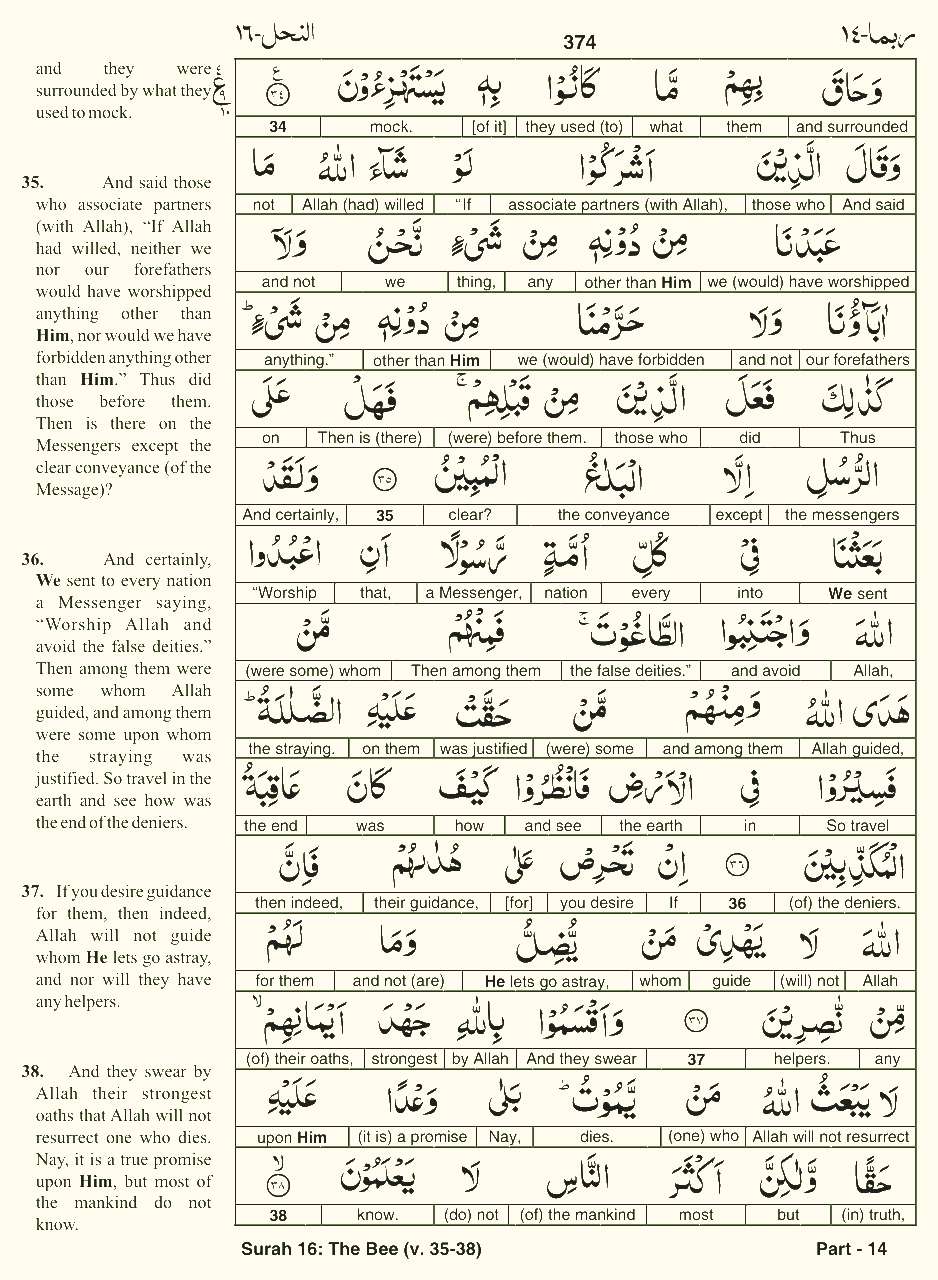 النحل-١٦
374
ربما-١٤
and they were
surrounded by what they
used to mock.
ع
٤
٩
١٠
35. And said those
who associate partners
(with Allah), “If Allah
had willed, neither we
nor our forefathers
would have worshipped
anything other than
Him, nor would we have
forbidden anything other
than Him.” Thus did
those before them.
Then is there on the
Messengers except the
clear conveyance (of the
Message)?
36. And certainly,
We sent to every nation
a Messenger saying,
“Worship Allah and
avoid the false deities.”
Then among them were
some whom Allah
guided, and among them
were some upon whom
the straying was
justified. So travel in the
earth and see how was
the end of the deniers.
37. If you desire guidance
for them, then indeed,
Allah will not guide
whom He lets go astray,
and nor will they have
any helpers.
38. And they swear by
Allah their strongest
oaths that Allah will not
resurrect one who dies.
Nay, it is a true promise
upon Him, but most of
the mankind do not
know.
وَحَاقَ بِهِمْ مَّا كَانُوْا بِهٖ يَسْتَهْزِءُوْنَ ٣٤ ع
34 mock. [of it] they used (to) what them and surrounded
وَقَالَ الَّذِيْنَ اَشْرَكُوْا لَوْ شَآءَ اللّٰهُ مَا
not Allah (had) willed “If associate partners (with Allah), those who And said
عَبَدْنَا مِنْ دُوْنِهٖ مِنْ شَىْءٍ نَّحْنُ وَلَاۤ
and not we thing, any other than Him we (would) have worshipped
اٰبَآؤُنَا وَلَا حَرَّمْنَا مِنْ دُوْنِهٖ مِنْ شَىْءٍ ؕ
anything.” other than Him we (would) have forbidden and not our forefathers
كَذٰلِكَ فَعَلَ الَّذِيْنَ مِنْ قَبْلِهِمْ ۚ فَهَلْ عَلَى
on Then is (there) (were) before them. those who did Thus
الرُّسُلِ اِلَّا الْبَلٰغُ الْمُبِيْنُ ٣٥ وَلَقَدْ
And certainly, 35 clear? the conveyance except the messengers
بَعَثْنَا فِىْ كُلِّ اُمَّةٍ رَّسُوْلًا اَنِ اعْبُدُوا
“Worship that, a Messenger, nation every into We sent
اللّٰهَ وَاجْتَنِبُوا الطَّاغُوْتَ ۚ فَمِنْهُمْ مَّنْ
(were some) whom Then among them the false deities.” and avoid Allah,
هَدَى اللّٰهُ وَمِنْهُمْ مَّنْ حَقَّتْ عَلَيْهِ الضَّلٰلَةُ ؕ
the straying. on them was justified (were) some and among them Allah guided,
فَسِيْرُوْا فِى الْاَرْضِ فَانْظُرُوْا كَيْفَ كَانَ عَاقِبَةُ
the end was how and see the earth in So travel
الْمُكَذِّبِيْنَ ٣٦ اِنْ تَحْرِصْ عَلٰى هُدٰىهُمْ فَاِنَّ
then indeed, their guidance, [for] you desire If 36 (of) the deniers.
اللّٰهَ لَا يَهْدِىْ مَنْ يُّضِلُّ وَمَا لَهُمْ
for them and not (are) He lets go astray, whom guide (will) not Allah
مِّنْ نّٰصِرِيْنَ ٣٧ وَاَقْسَمُوْا بِاللّٰهِ جَهْدَ اَيْمَانِهِمْ ۙ
(of) their oaths, strongest by Allah And they swear 37 helpers. any
لَا يَبْعَثُ اللّٰهُ مَنْ يَّمُوْتُ ؕ بَلٰى وَعْدًا عَلَيْهِ
upon Him (it is) a promise Nay, dies. (one) who Allah will not resurrect
حَقًّا وَّلٰكِنَّ اَكْثَرَ النَّاسِ لَا يَعْلَمُوْنَ ٣٨ ۙ
38 know. (do) not (of) the mankind most but (in) truth,
Surah 16: The Bee (v. 35-38)
Part - 14